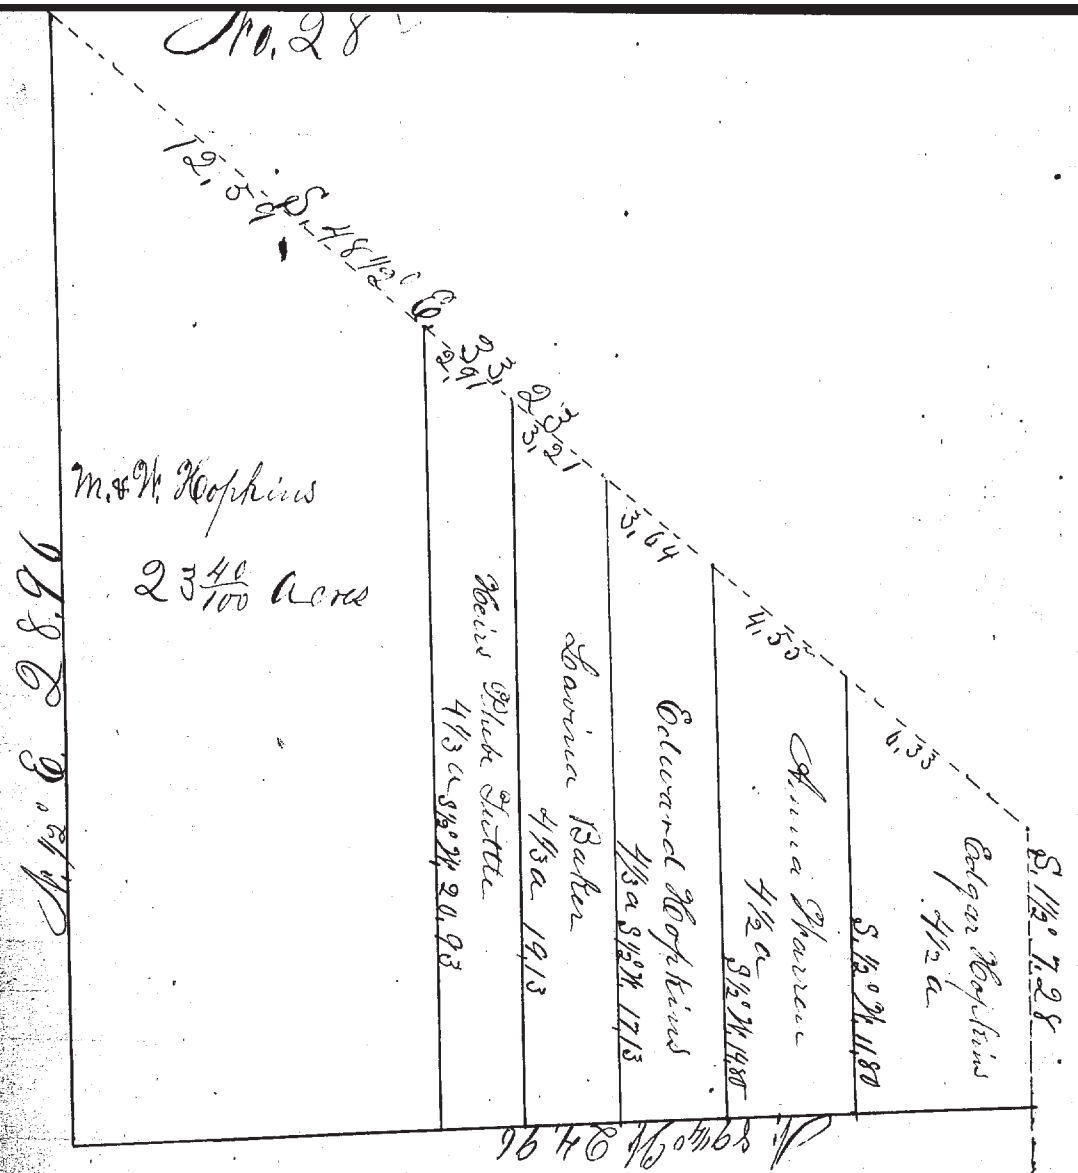 No. 28
12,59 S. 48 1/2° E. 33,23
2,91
3,21
3,64
4,55
6,33
M. & W. Hopkins
23 40/100 Acres
N. 1/2° E. 28,96
Heirs Phebe Tuttle
4 1/3 a S 1/2° W. 20,93
Lavina Baker
4 1/3 a 19,13
Edward Hopkins
4 1/3 a S 1/2° W. 17,13
Anna
4 1/2 a S 1/2° W. 14,80
S. 1/2° W. 11,80
Edgar Hopkins
4 1/2 a
S. 1 1/2° 7.28
N. 89 1/4° W. 24,96